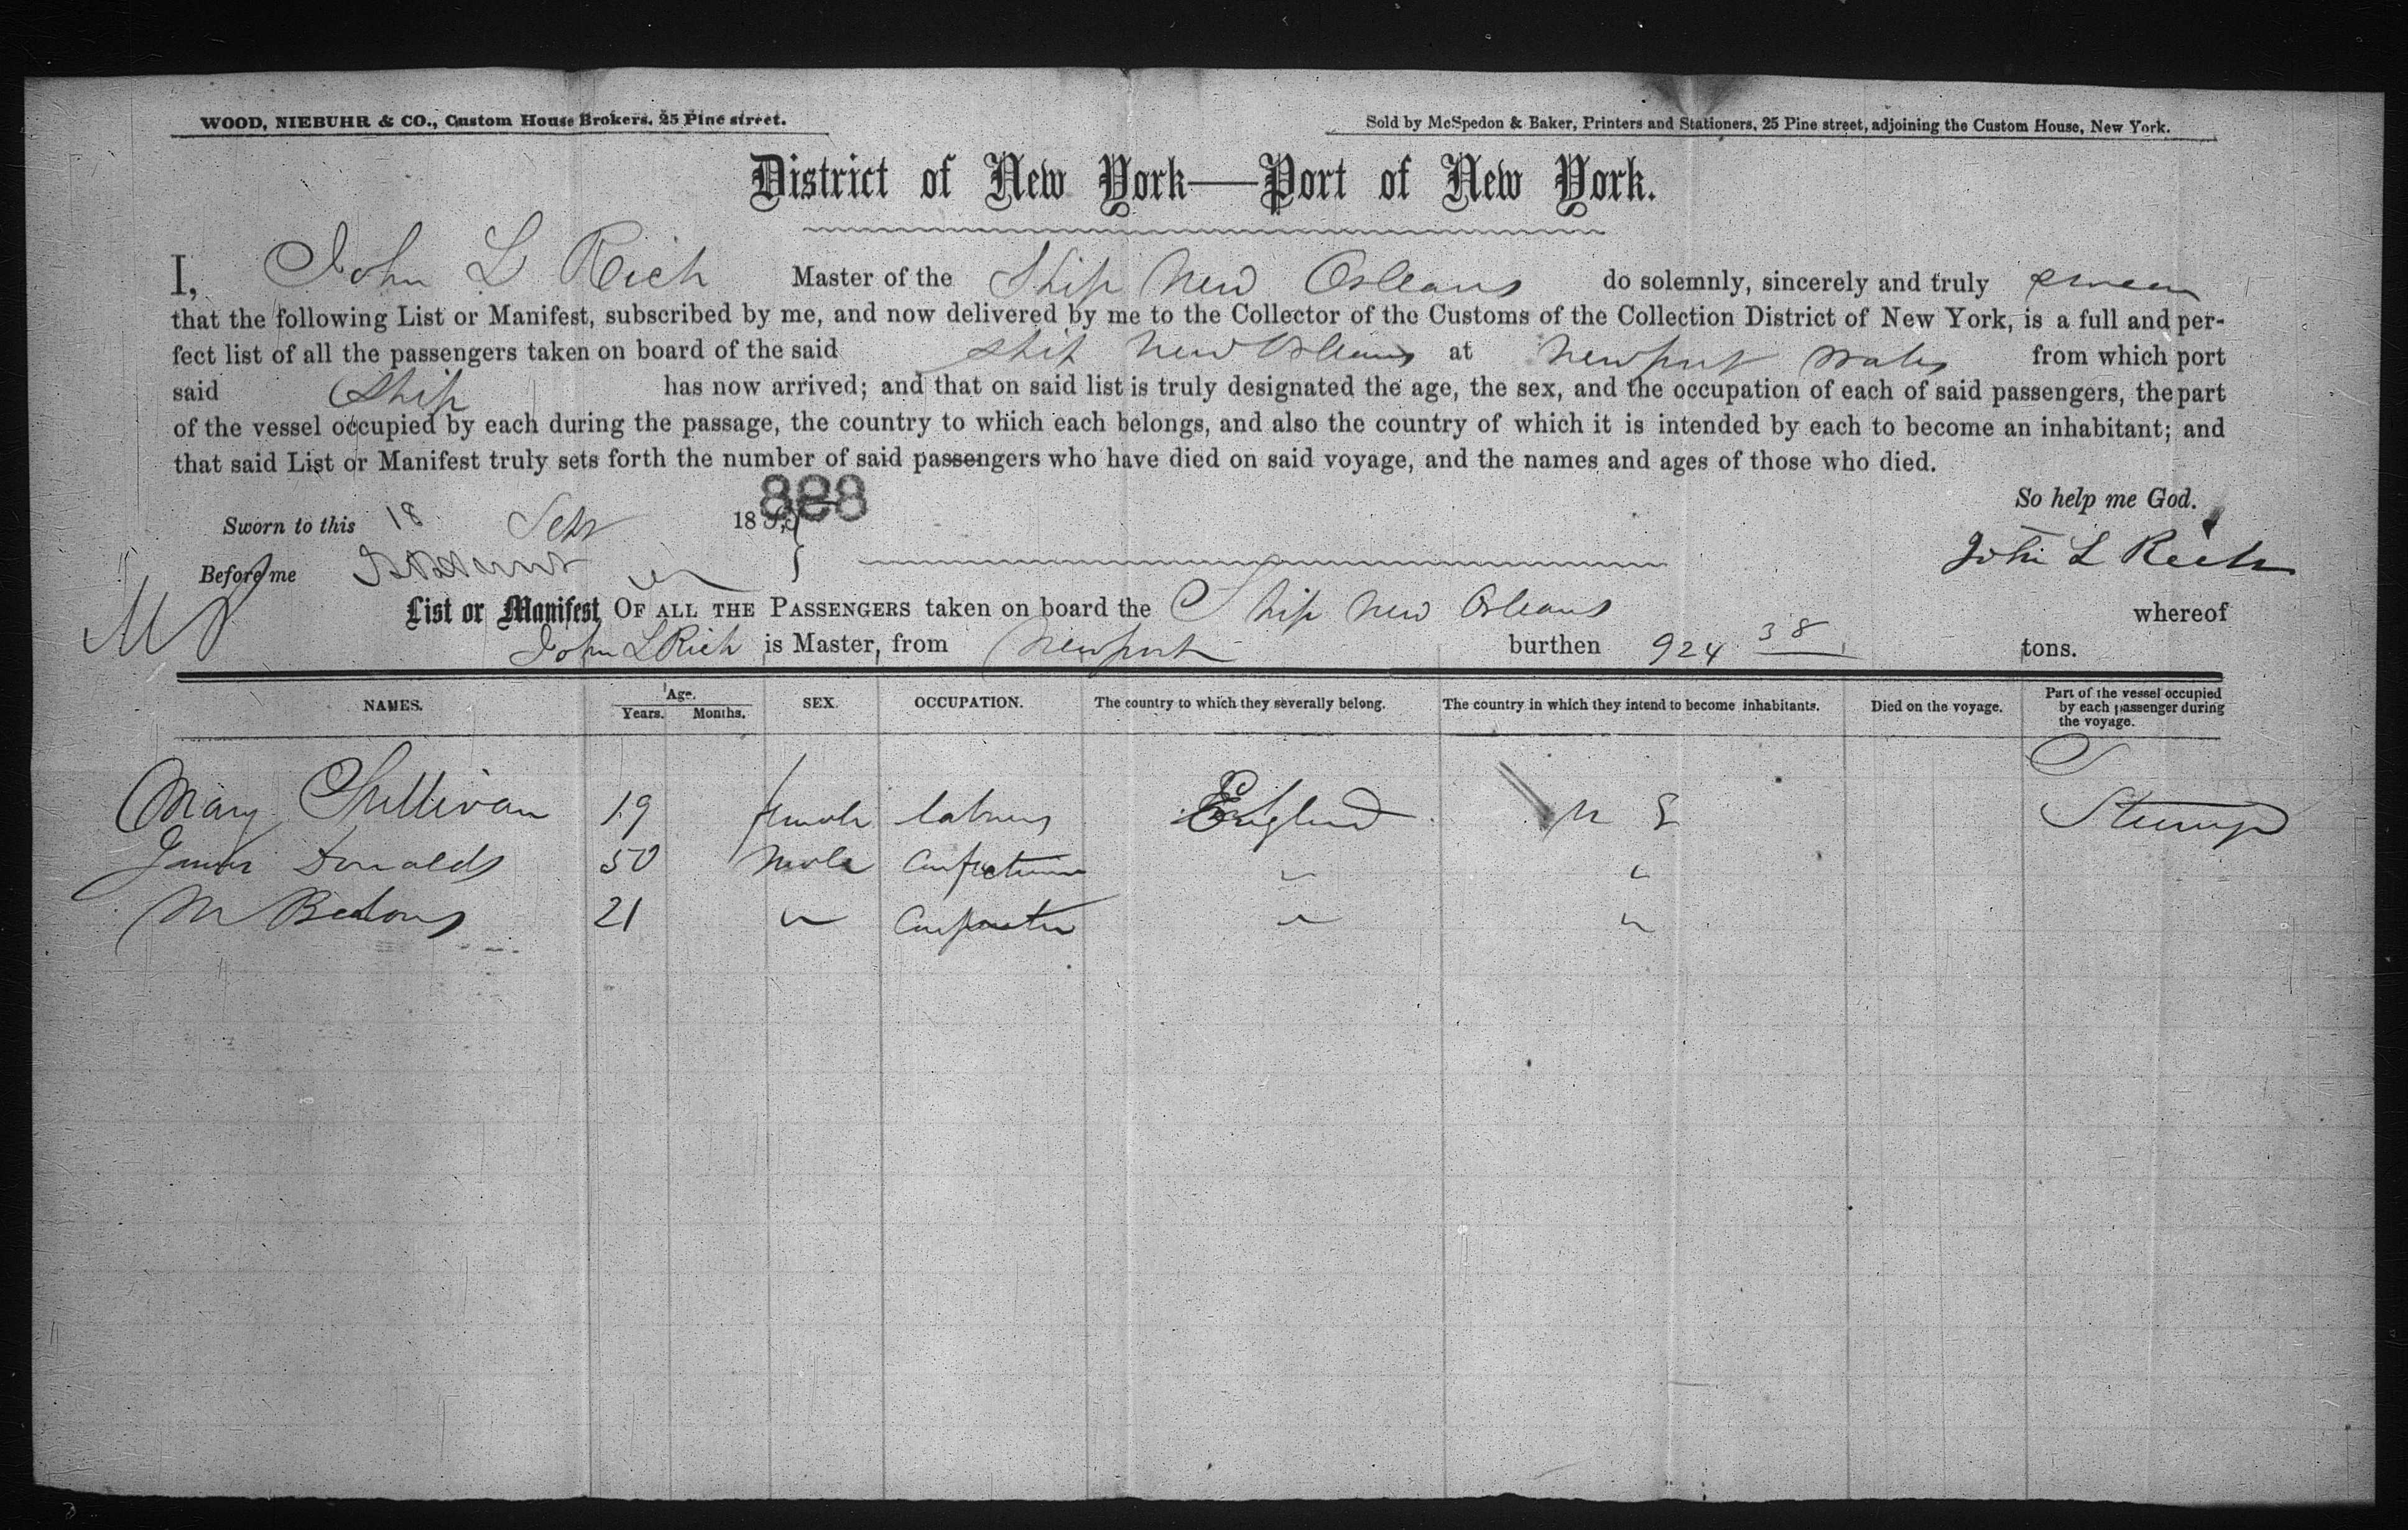 WOOD, NIEBUHR & CO., Custom House Brokers, 25 Pine street.
Sold by McSpedon & Baker, Printers and Stationers, 25 Pine street, adjoining the Custom House, New York.
District of New York—Port of New York.
I, John L Rich Master of the Ship New Orleans do solemnly, sincerely and truly swear
that the following List or Manifest, subscribed by me, and now delivered by me to the Collector of the Customs of the Collection District of New York, is a full and per-
fect list of all the passengers taken on board of the said ship New Orleans at Newport Wales from which port
said ship has now arrived; and that on said list is truly designated the age, the sex, and the occupation of each of said passengers, the part
of the vessel occupied by each during the passage, the country to which each belongs, and also the country of which it is intended by each to become an inhabitant; and
that said List or Manifest truly sets forth the number of said passengers who have died on said voyage, and the names and ages of those who died.
888
So help me God.
Sworn to this 18 Sept 18
John L Rich
Before me
List or Manifest, OF ALL THE PASSENGERS taken on board the Ship New Orleans whereof
John L Rich is Master, from Newport burthen 924 38 tons.
NAMES. Age. Years. Months. SEX. OCCUPATION. The country to which they severally belong. The country in which they intend to become inhabitants. Died on the voyage. Part of the vessel occupied by each passenger during the voyage.
Mary Sullivan 19 female England
James Donalds 50 male "
M 21 " Carpenter " "